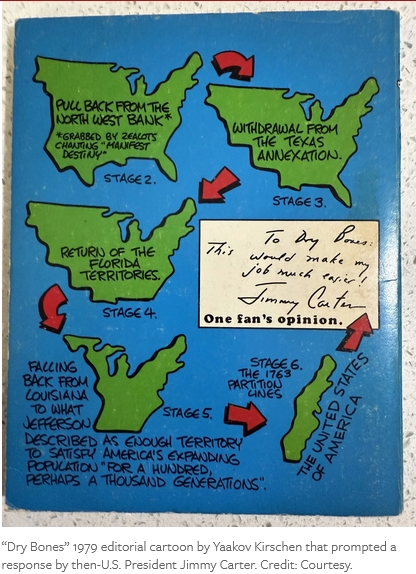 PULL BACK FROM THE
NORTH WEST BANK*
*GRABBED BY ZEALOTS
CHANTING "MANIFEST
DESTINY"
STAGE 2.
WITHDRAWAL FROM
THE TEXAS
ANNEXATION.
STAGE 3.
RETURN OF THE
FLORIDA
TERRITORIES.
STAGE 4.
To Dry Bones:
This would make my
job much easier!
Jimmy Carter
One fan's opinion.
FALLING
BACK FROM
LOUISIANA
TO WHAT
JEFFERSON
DESCRIBED AS ENOUGH TERRITORY
TO SATISFY AMERICA'S EXPANDING
POPULATION "FOR A HUNDRED,
PERHAPS A THOUSAND GENERATIONS".
STAGE 5.
STAGE 6.
THE 1763
PARTITION
LINES
THE UNITED STATES
OF AMERICA
"Dry Bones" 1979 editorial cartoon by Yaakov Kirschen that prompted a
response by then-U.S. President Jimmy Carter. Credit: Courtesy.